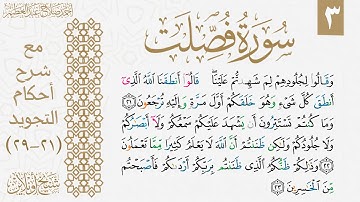 ٣
سورة فصلت
مع
شرح
أحكام
التجويد
(٢١-٢٩)
وَقَالُوا۟ لِجُلُودِهِمْ لِمَ شَهِدتُّمْ عَلَيْنَا ۖ قَالُوٓا۟ أَنطَقَنَا ٱللَّهُ ٱلَّذِىٓ
أَنطَقَ كُلَّ شَىْءٍ وَهُوَ خَلَقَكُمْ أَوَّلَ مَرَّةٍ وَإِلَيْهِ تُرْجَعُونَ ٢١
وَمَا كُنتُمْ تَسْتَتِرُونَ أَن يَشْهَدَ عَلَيْكُمْ سَمْعُكُمْ وَلَآ أَبْصَـٰرُكُمْ
وَلَا جُلُودُكُمْ وَلَـٰكِن ظَنَنتُمْ أَنَّ ٱللَّهَ لَا يَعْلَمُ كَثِيرًا مِّمَّا تَعْمَلُونَ
٢٢ وَذَٰلِكُمْ ظَنُّكُمُ ٱلَّذِى ظَنَنتُم بِرَبِّكُمْ أَرْدَىٰكُمْ فَأَصْبَحْتُم
مِّنَ ٱلْخَـٰسِرِينَ ٢٣